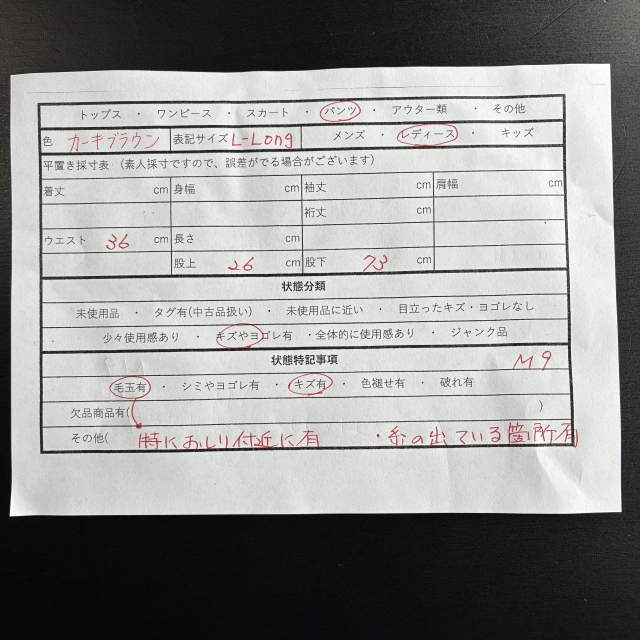 トップス ・ ワンピース ・ スカート ・ パンツ ・ アウター類 ・ その他
色 カーキブラウン 表記サイズ L-Long メンズ ・ レディース ・ キッズ
平置き採寸表（素人採寸ですので、誤差がでる場合がございます）
着丈 cm 身幅 cm 袖丈 cm 肩幅 cm
裄丈 cm
ウエスト 36 cm 長さ cm cm
股上 26 cm 股下 73 cm
状態分類
未使用品 ・ タグ有(中古品扱い) ・ 未使用品に近い ・ 目立ったキズ・ヨゴレなし
少々使用感あり ・ キズやヨゴレ有 ・全体的に使用感あり ・ ジャンク品
状態特記事項 M9
毛玉有 ・ シミやヨゴレ有 ・ キズ有 ・ 色褪せ有 ・ 破れ有
欠品商品有( )
その他( 特におしり付近に有 ・糸の出ている箇所有